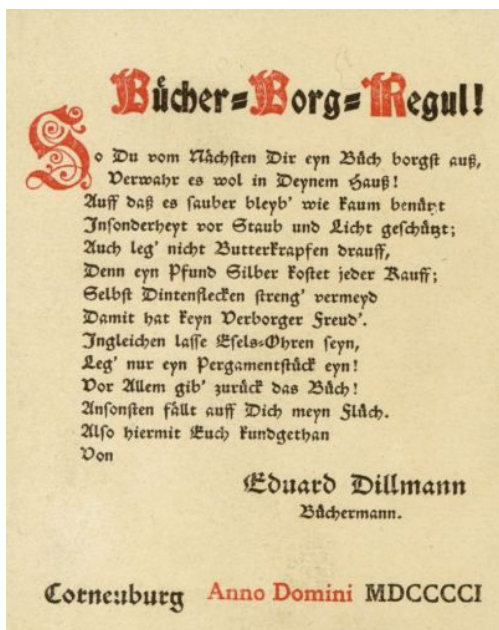 Bůcher=Borg=Regul!
So Du vom Nåchsten Dir eyn Bůch borgst auß,
Verwahr es wol in Deynem Hauß!
Auff daß es sauber bleyb' wie kaum benützt
Insonderheyt vor Staub und Licht geschützt;
Auch leg' nicht Butterkrapfen drauff,
Denn eyn Pfund Silber kostet jeder Kauff;
Selbst Dintenflecken streng' vermeyd
Damit hat keyn Verborger Freud'.
Ingleichen lasse Esels=Ohren seyn,
Leg' nur eyn Pergamentstück eyn!
Vor Allem gib' zurück das Bůch!
Ansonsten fällt auff Dich meyn Flůch.
Also hiermit Euch kundgethan
Von
Eduard Dillmann
Bůchermann.
Corneuburg Anno Domini MDCCCCI